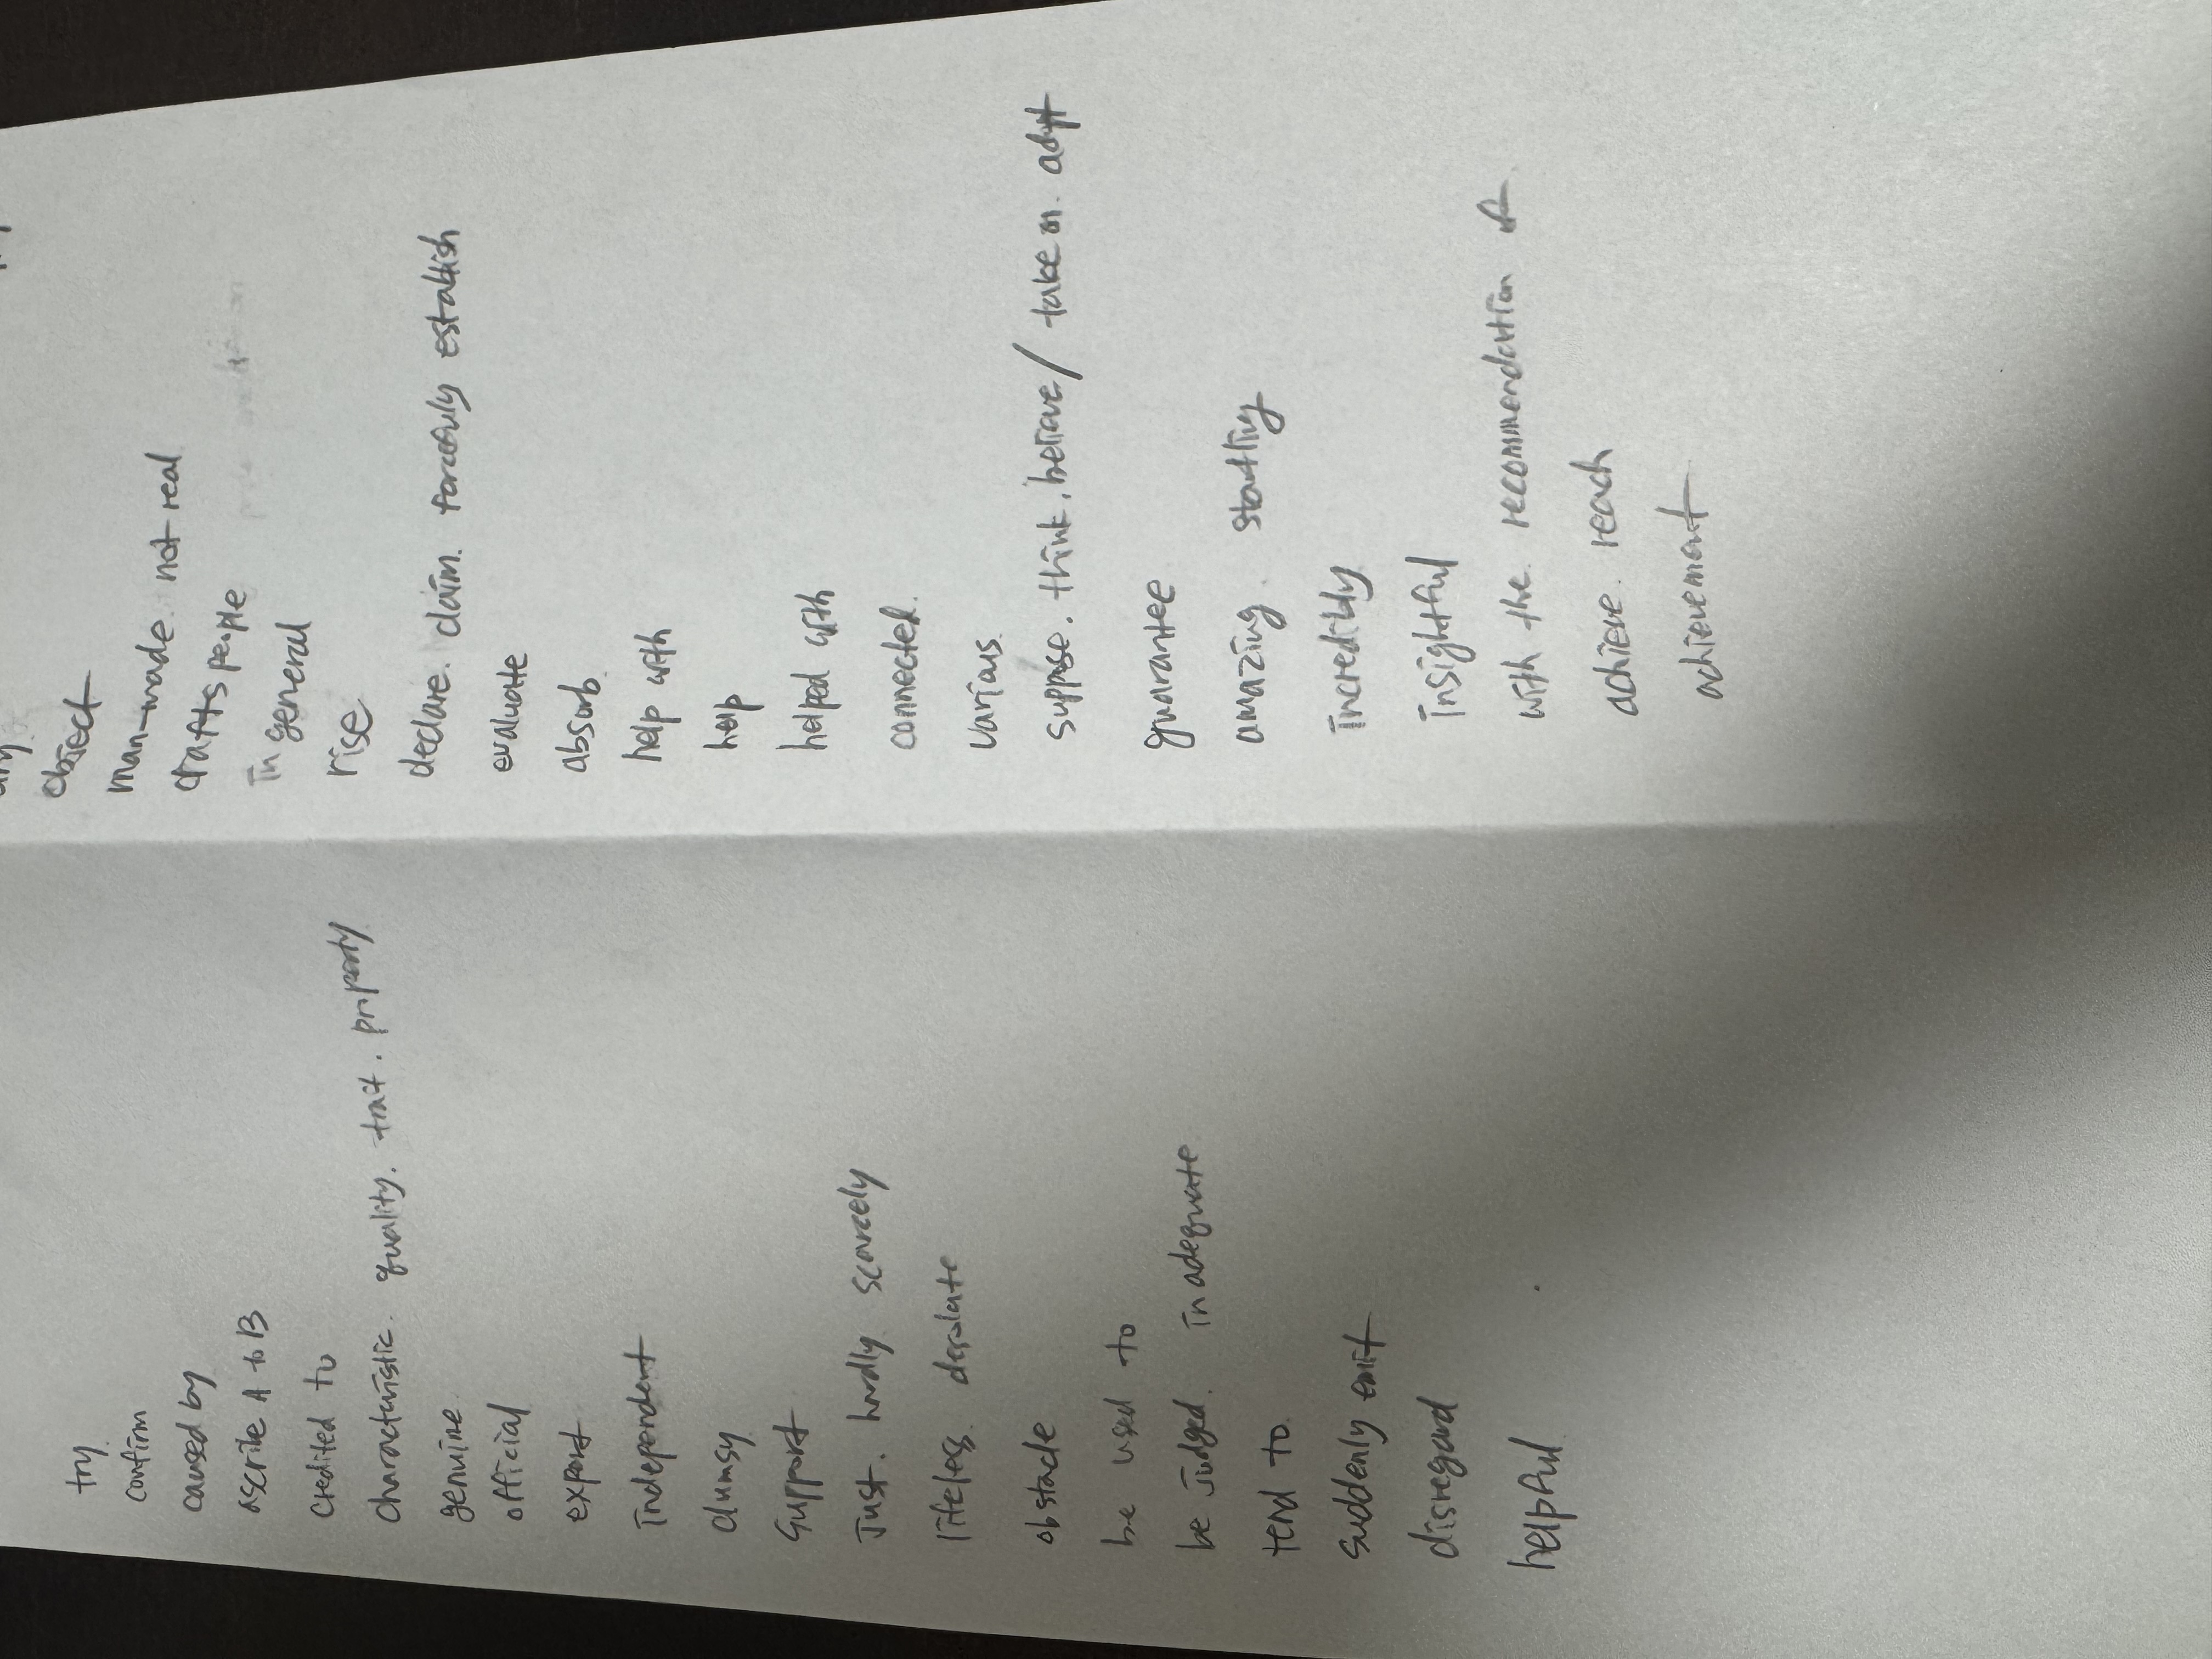 try
confirm
caused by
ascribe A to B
credited to
characteristic. quality. trait. property
genuine
official
export
independent
clumsy
support
just. hardly scarcely
lifeless. desolate
obstacle
be used to
be judged. inadequate
tend to
suddenly emit
disregard
helpful
object
man-made. not real
crafts people
in general
rise
declare. claim. forcefully establish
evaluate
absorb
help with
help
helped with
connected
various
suppose. think. believe / take on. adopt
guarantee
amazing. startling
incredibly
insightful
with the recommendation of
achieve. reach
achievement